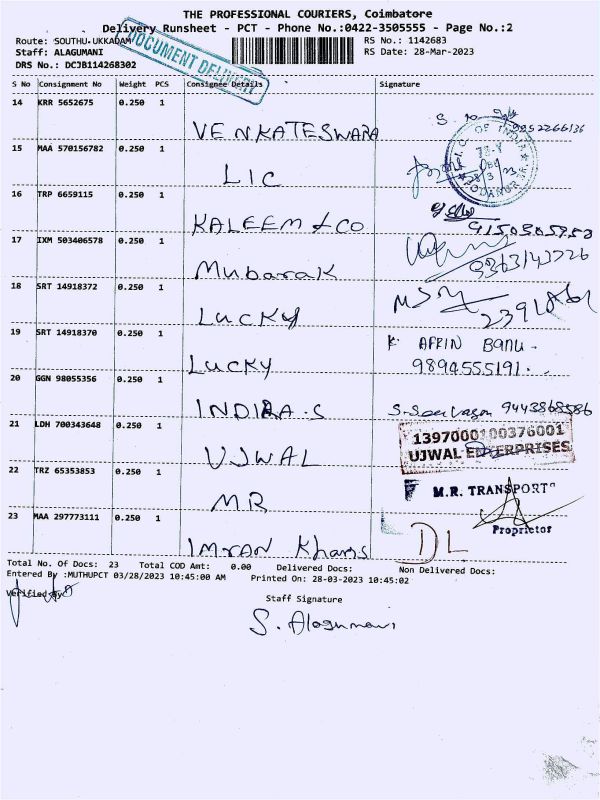 THE PROFESSIONAL COURIERS, Coimbatore
Delivery Runsheet - PCT - Phone No.:0422-3505555 - Page No.:2
Route: SOUTHU-UKKADAM
RS No.: 1142683
Staff: ALAGUMANI
RS Date: 28-Mar-2023
DRS No.: DCJB114268302
DOCUMENT DELIVERY
S No Consignment No Weight PCS Consignee Details Signature
14 KRR 5652675 0.250 1
VENKATESWARA
9952266136
15 MAA 570156782 0.250 1
LIC
L.I.C. OF INDIA
28/3/23
16 TRP 6659115 0.250 1
KALEEM & CO
9150305950
17 IXM 503406578 0.250 1
Mubarak
9363143226
18 SRT 14918372 0.250 1
LUCKY
19 SRT 14918370 0.250 1
LUCKY
K. AFRIN BANU -
9894555191.
20 GGN 98055356 0.250 1
INDIRA.S
S. Saravanan 9443868586
21 LDH 700343648 0.250 1
UJWAL
1397000100376001
UJWAL ENTERPRISES
22 TRZ 65353853 0.250 1
MR
M.R. TRANSPORT
Proprietor
23 MAA 297773111 0.250 1
IMRAN Khans
DL
Total No. Of Docs: 23 Total COD Amt: 0.00 Delivered Docs: Non Delivered Docs:
Entered By :MUTHUPCT 03/28/2023 10:45:00 AM Printed On: 28-03-2023 10:45:02
Verified By
Staff Signature
S. Alagumani